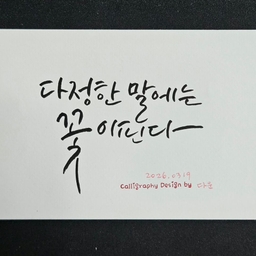 다정한 말에는
꽃이핀다
2026.0319
Calligraphy Design by